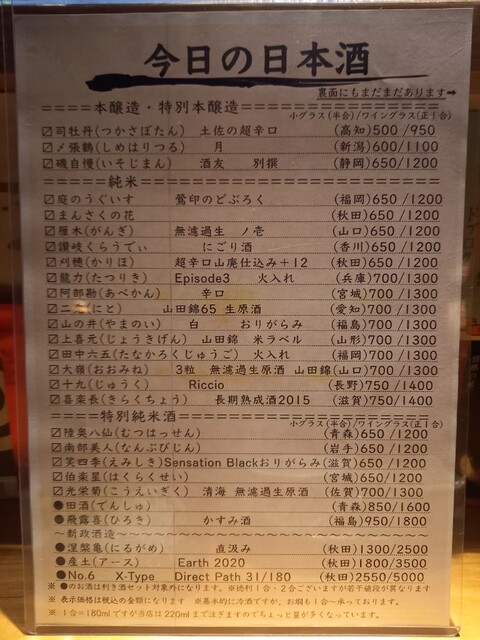 今日の日本酒
裏面にもまだまだあります→
====本醸造・特別本醸造====================
小グラス(半合)/ワイングラス(正1合)
☑司牡丹(つかさぼたん) 土佐の超辛口 (高知)500/950
☑〆張鶴(しめはりつる) 月 (新潟)600/1100
☑磯自慢(いそじまん) 酒友 別撰 (静岡)650/1200
====純米====================
☑庭のうぐいす 鶯印のどぶろく (福岡)650/1200
☑まんさくの花 (秋田)650/1200
☑雁木(がんぎ) 無濾過生 ノ壱 (山口)650/1200
☑讃岐くらうでぃ にごり酒 (香川)650/1200
☑刈穂(かりほ) 超辛口山廃仕込み+12 (秋田)650/1200
☑龍力(たつりき) Episode3 火入れ (兵庫)700/1300
☑阿部勘(あべかん) 辛口 (宮城)700/1300
☑二兎(にと) 山田錦65 生原酒 (愛知)700/1300
☑山の井(やまのい) 白 おりがらみ (福島)700/1300
☑上喜元(じょうきげん) 山田錦 米ラベル (山形)700/1300
☑田中六五(たなかろくじゅうご) 火入れ (福岡)700/1300
☑大嶺(おおみね) 3粒 無濾過生原酒 山田錦(山口)700/1300
☑十九(じゅうく) Riccio (長野)750/1400
☑喜楽長(きらくちょう) 長期熟成酒2015 (滋賀)750/1400
====特別純米酒====================
小グラス(半合)/ワイングラス(正1合)
☑陸奥八仙(むつはっせん) (青森)650/1200
☑南部美人(なんぶびじん) (岩手)650/1200
☑笑四季(えみしき)Sensation Blackおりがらみ(滋賀)650/1200
☑伯楽星(はくらくせい) (宮城)650/1200
☑光栄菊(こうえいぎく) 清海 無濾過生原酒 (佐賀)700/1300
●田酒(でんしゅ) (青森)850/1600
●飛露喜(ひろき) かすみ酒 (福島)950/1800
～新政酒造～～～～～～～～～～～～～～～～～～～～
●涅槃亀(にるがめ) 直汲み (秋田)1300/2500
●産土(アース) Earth 2020 (秋田)1800/3500
●No.6 X-Type Direct Path 31/180 (秋田)2550/5000
※ ●のお酒は利き酒セット対象外になります。※徳利1合・2合ございますが若干値段が異なります
※ 表示価格は税込の金額になります ※基本的に冷酒ですが、お燗も1合～承っております。
※ 1合=180mlですが当店は220mlまで注ぎますのでちょっと量が多くなっています。